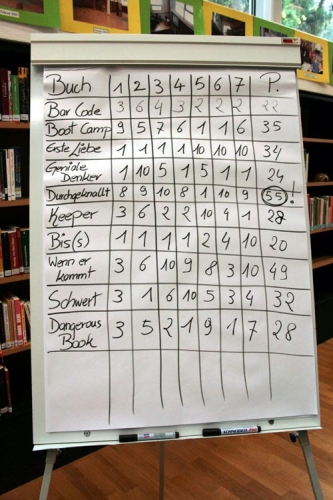 Buch 1 2 3 4 5 6 7 P.
Bar Code 3 6 4 3 2 2 2 22
Boot Camp 9 5 7 6 1 1 6 35
Erste Liebe 1 1 1 1 10 10 10 34
Geniale Denker 1 10 5 1 5 1 1 24
Durchgeknallt 8 9 10 8 1 10 9 55!
Keeper 3 6 2 2 10 4 1 28
Bis(s) 1 1 1 1 2 4 10 20
Wenn er kommt 3 6 10 9 8 3 10 49
Schwert 3 1 6 10 5 3 4 32
Dangerous Book 3 5 2 1 9 1 7 28